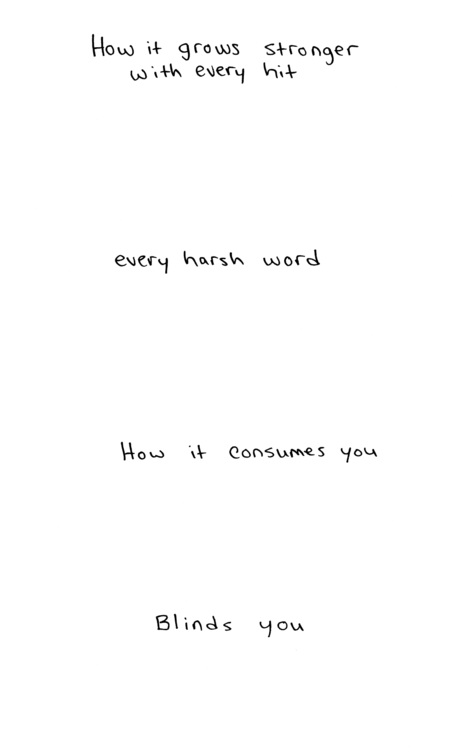 How it grows stronger
with every hit
every harsh word
How it consumes you
Blinds you